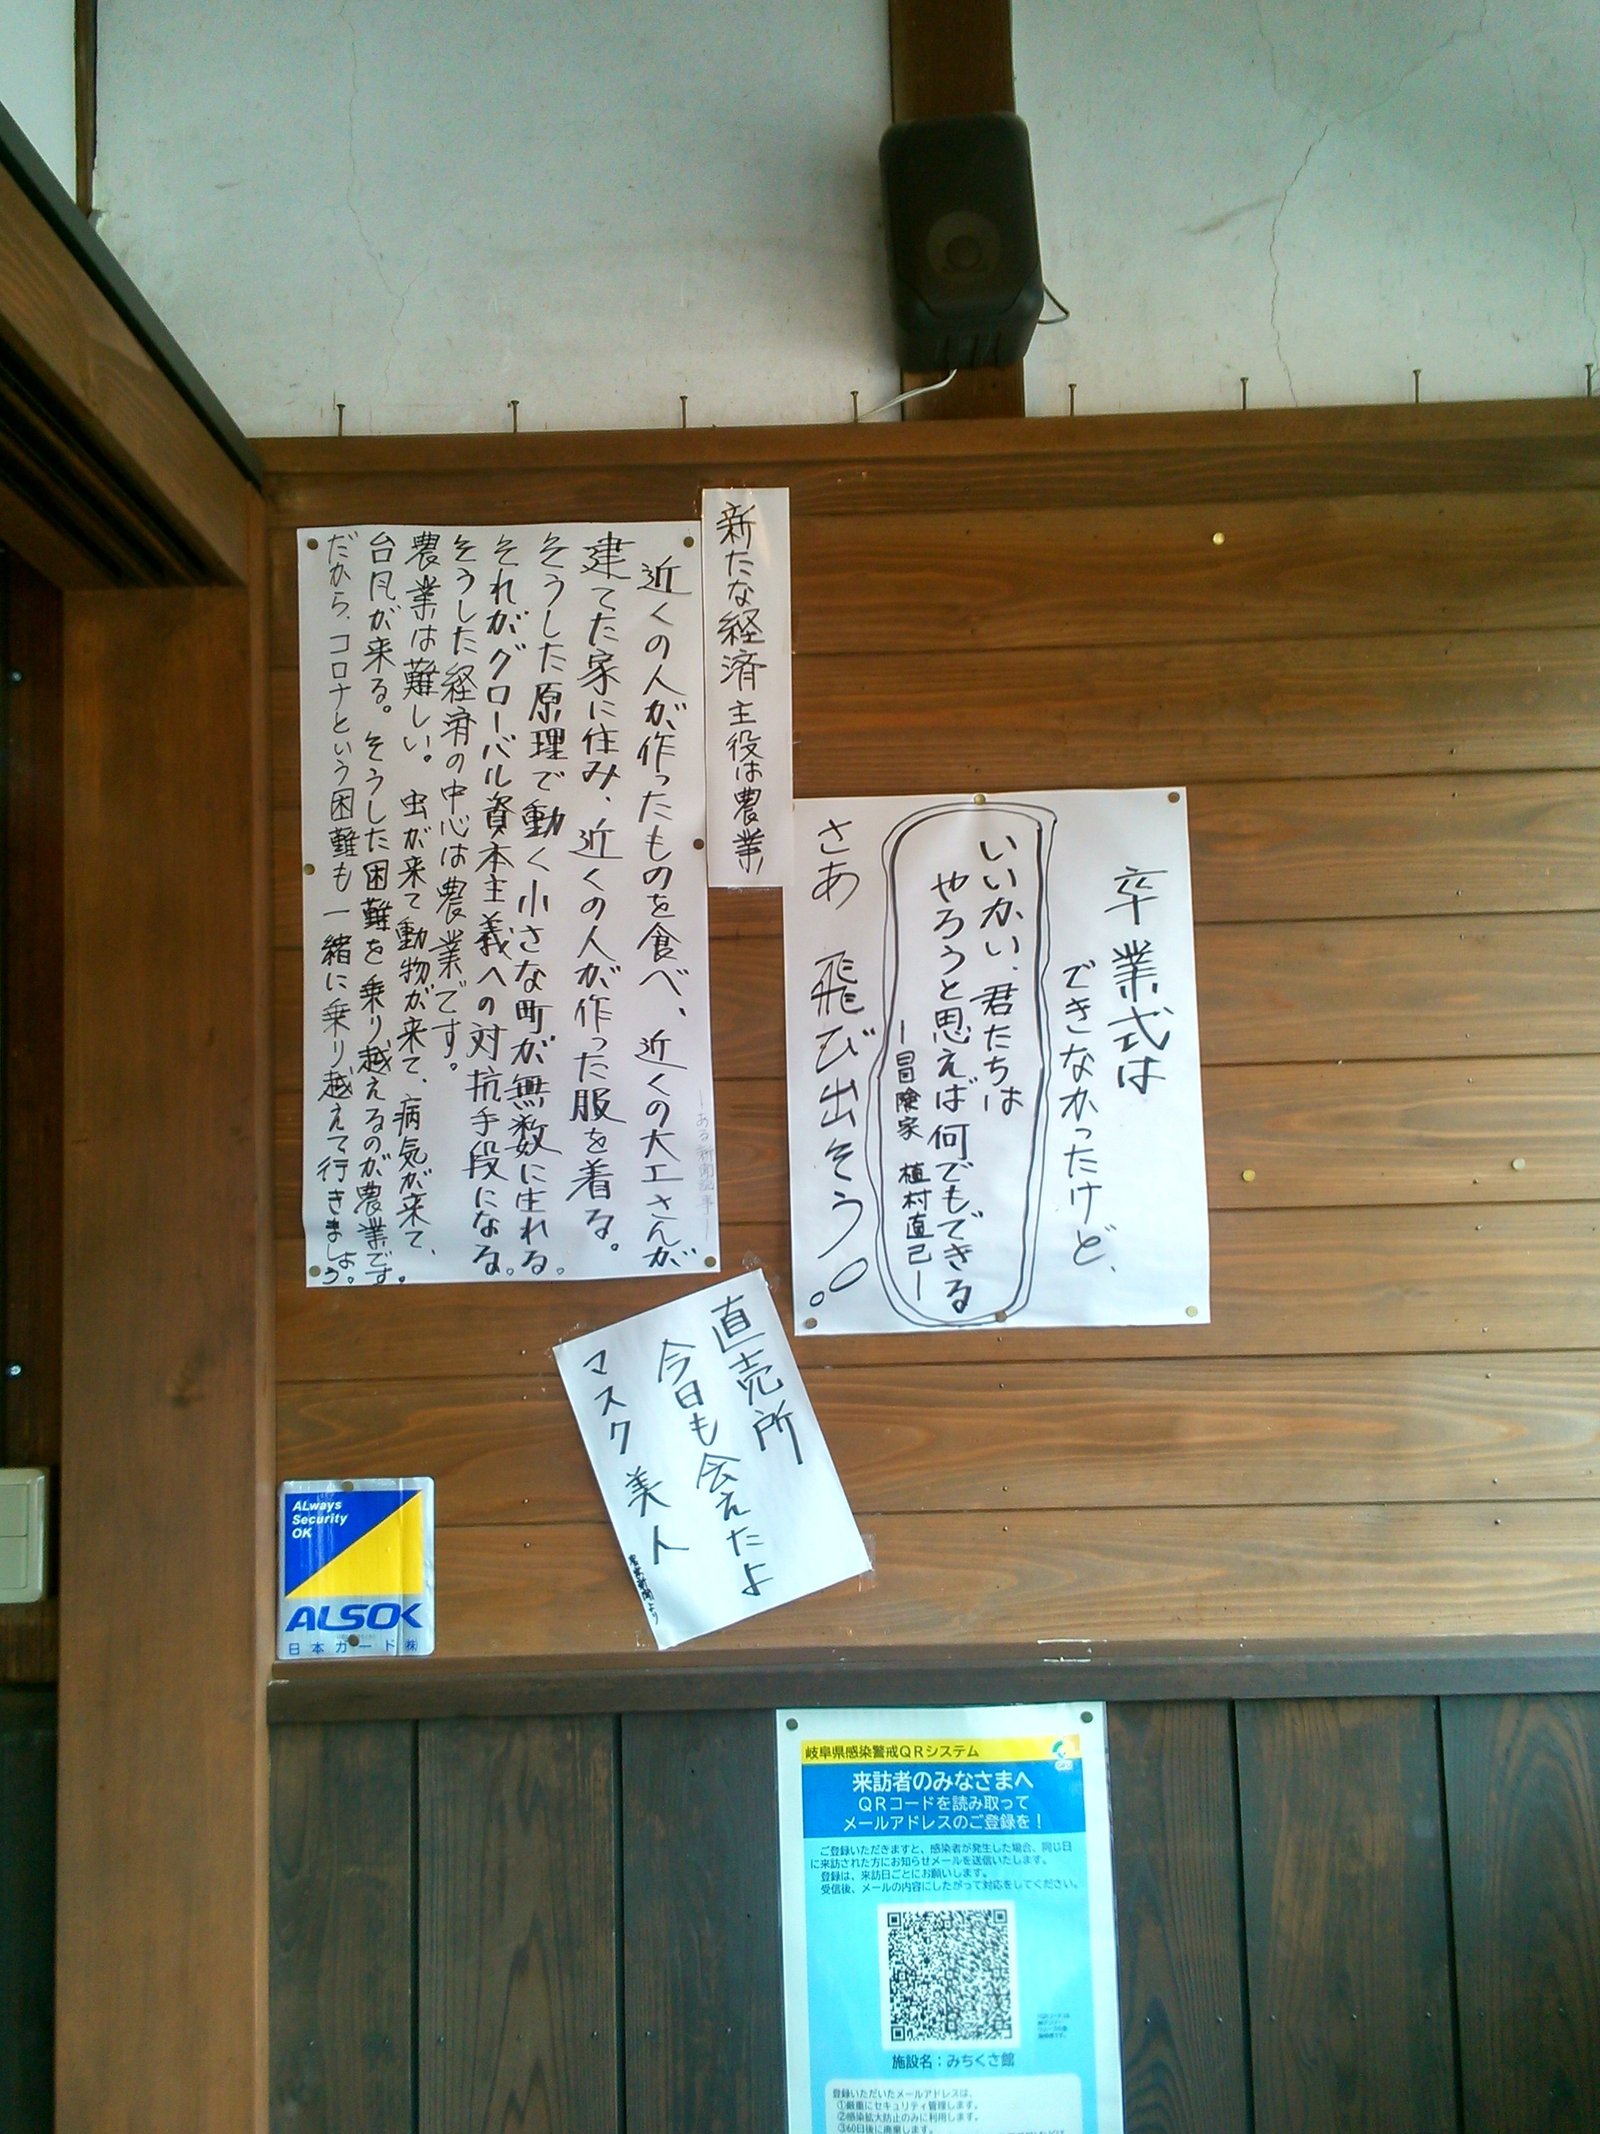 卒業式は
できなかったけど、
いいかい、君たちは
やろうと思えば何でもできる
ー冒険家 植村直己ー
さあ 飛び出そう。
新たな経済主役は農業
ーある新聞記事ー
近くの人が作ったものを食べ、近くの大工さんが
建てた家に住み、近くの人が作った服を着る。
そうした原理で動く小さな町が無数に生れる。
それがグローバル資本主義への対抗手段になる。
そうした経済の中心は農業です。
農業は難しい。虫が来て動物が来て、病気が来て、
台风が来る。そうした困難を乗り越えるのが農業です。
だから、コロナという困難も一緒に乗り越えて行きましょう。
直売所
今日も会えたよ
マスク美人
新聞より
ALways
Security
OK
ALSOK
日本ガード㈱
岐阜県感染警戒QRシステム
来訪者のみなさまへ
QRコードを読み取って
メールアドレスのご登録を！
ご登録いただきますと、感染者が発生した場合、同じ日
に来訪された方にお知らせメールを送信いたします。
登録は、来訪日ごとにお願いします。
受信後、メールの内容にしたがって対応をしてください。
施設名：みちくさ館
登録いただいたメールアドレスは、
①厳重にセキュリティ管理します。
②感染拡大防止のみに利用します。
③60日後に廃棄します。